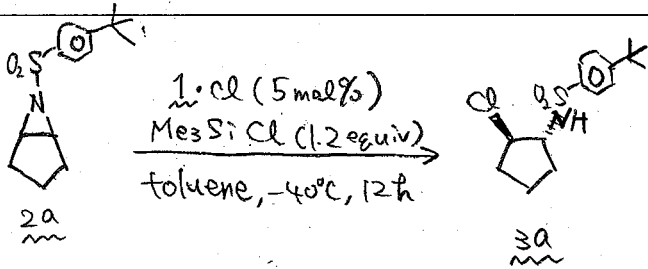 O₂S
N
2a
1·Cl (5 mol%)
Me₃SiCl (1.2 equiv)
toluene, -40°C, 12h
Cl
O₂S
NH
3a